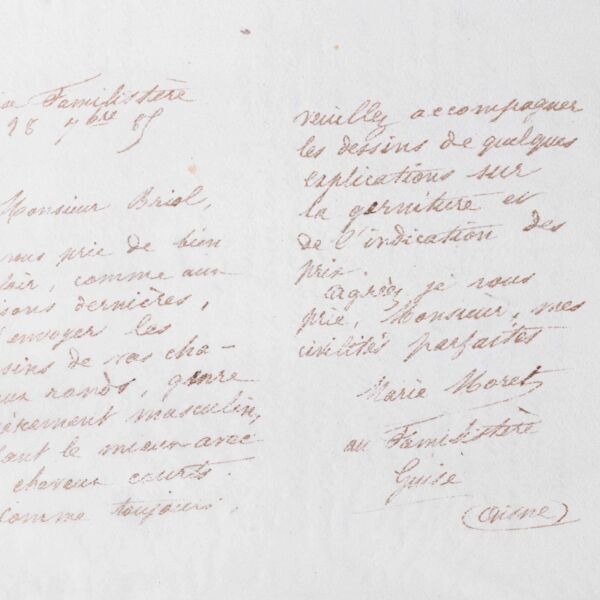 Familistère
28 7bre 85
Monsieur Briol,
vous prie de bien
comme aux
dernières,
envoyer les
de vos cha-
ronds, genre
vêtement masculin,
allant le mieux avec
cheveux courts.
comme toujours,
veuillez accompagner
les dessins de quelques
explications sur
la garniture et
de l'indication des
prix.
Agréez, je vous
prie, Monsieur, mes
civilités parfaites
Marie Moret
au Familistère
Guise
(Aisne)